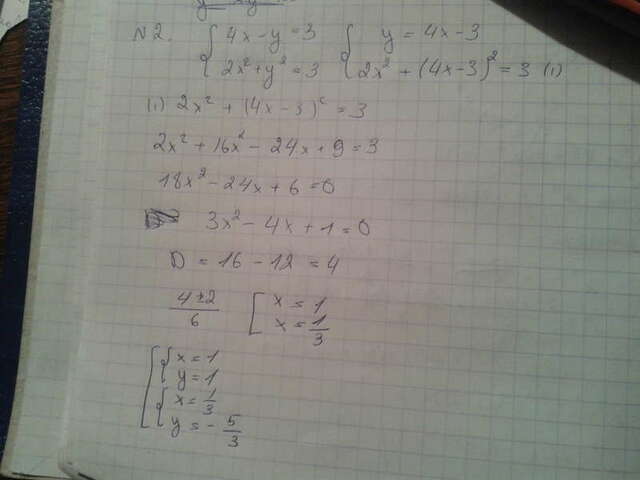 N2. { 4x - y = 3 { y = 4x - 3
2x² + y² = 3 2x² + (4x - 3)² = 3 (1)
(1) 2x² + (4x - 3)² = 3
2x² + 16x² - 24x + 9 = 3
18x² - 24x + 6 = 0
3x² - 4x + 1 = 0
D = 16 - 12 = 4
4±2/6 [ x = 1
x = 1/3
[ { x = 1
y = 1
{ x = 1/3
y = - 5/3